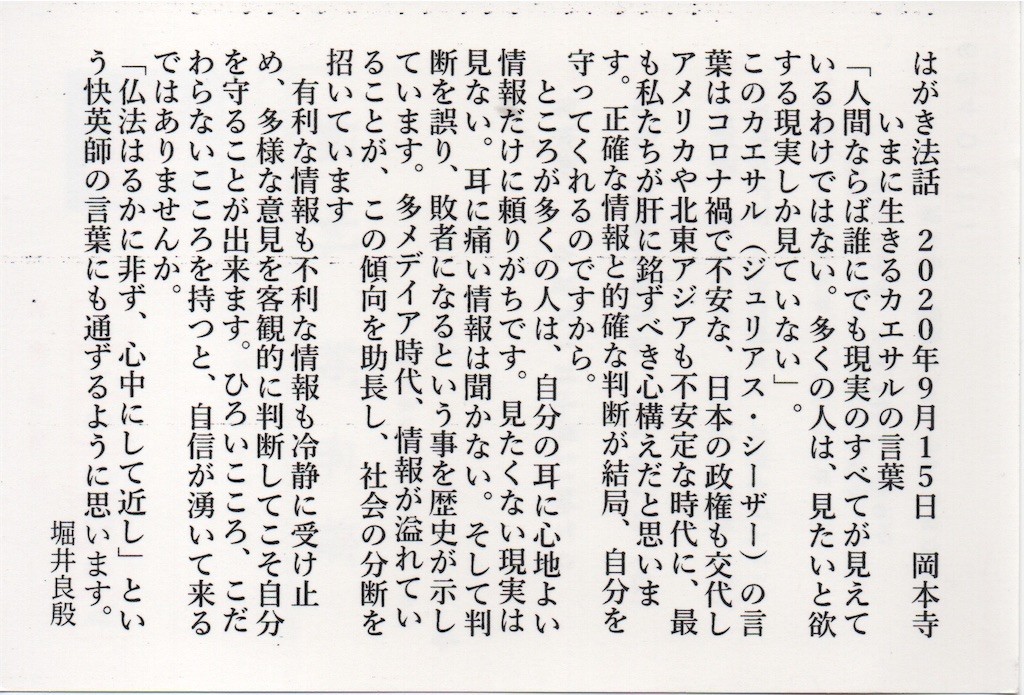 はがき法話　2020年9月15日　岡本寺
いまに生きるカエサルの言葉
「人間ならば誰にでも現実のすべてが見えて
いるわけではない。多くの人は、見たいと欲
する現実しか見ていない」。
このカエサル（ジュリアス・シーザー）の言
葉はコロナ禍で不安な、日本の政権も交代し
アメリカや北東アジアも不安定な時代に、最
も私たちが肝に銘ずべき心構えだと思いま
す。正確な情報と的確な判断が結局、自分を
守ってくれるのですから。
ところが多くの人は、自分の耳に心地よい
情報だけに頼りがちです。見たくない現実は
見ない。耳に痛い情報は聞かない。そして判
断を誤り、敗者になるという事を歴史が示し
ています。多メデイア時代、情報が溢れてい
ることが、この傾向を助長し、社会の分断を
招いています
有利な情報も不利な情報も冷静に受け止
め、多様な意見を客観的に判断してこそ自分
を守ることが出来ます。ひろいこころ、こだ
わらないこころを持つと、自信が湧いて来る
ではありませんか。
「仏法はるかに非ず、心中にして近し」とい
う快英師の言葉にも通ずるように思います。
堀井良殷